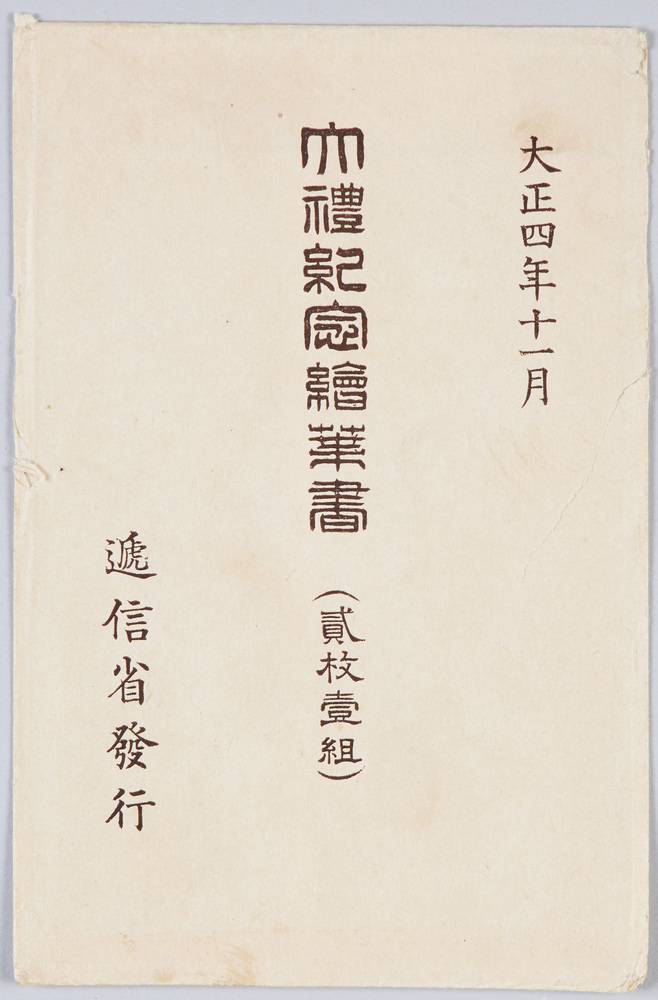 大正四年十一月
大禮紀念繪葉書
(貳枚壹組)
遞信省發行